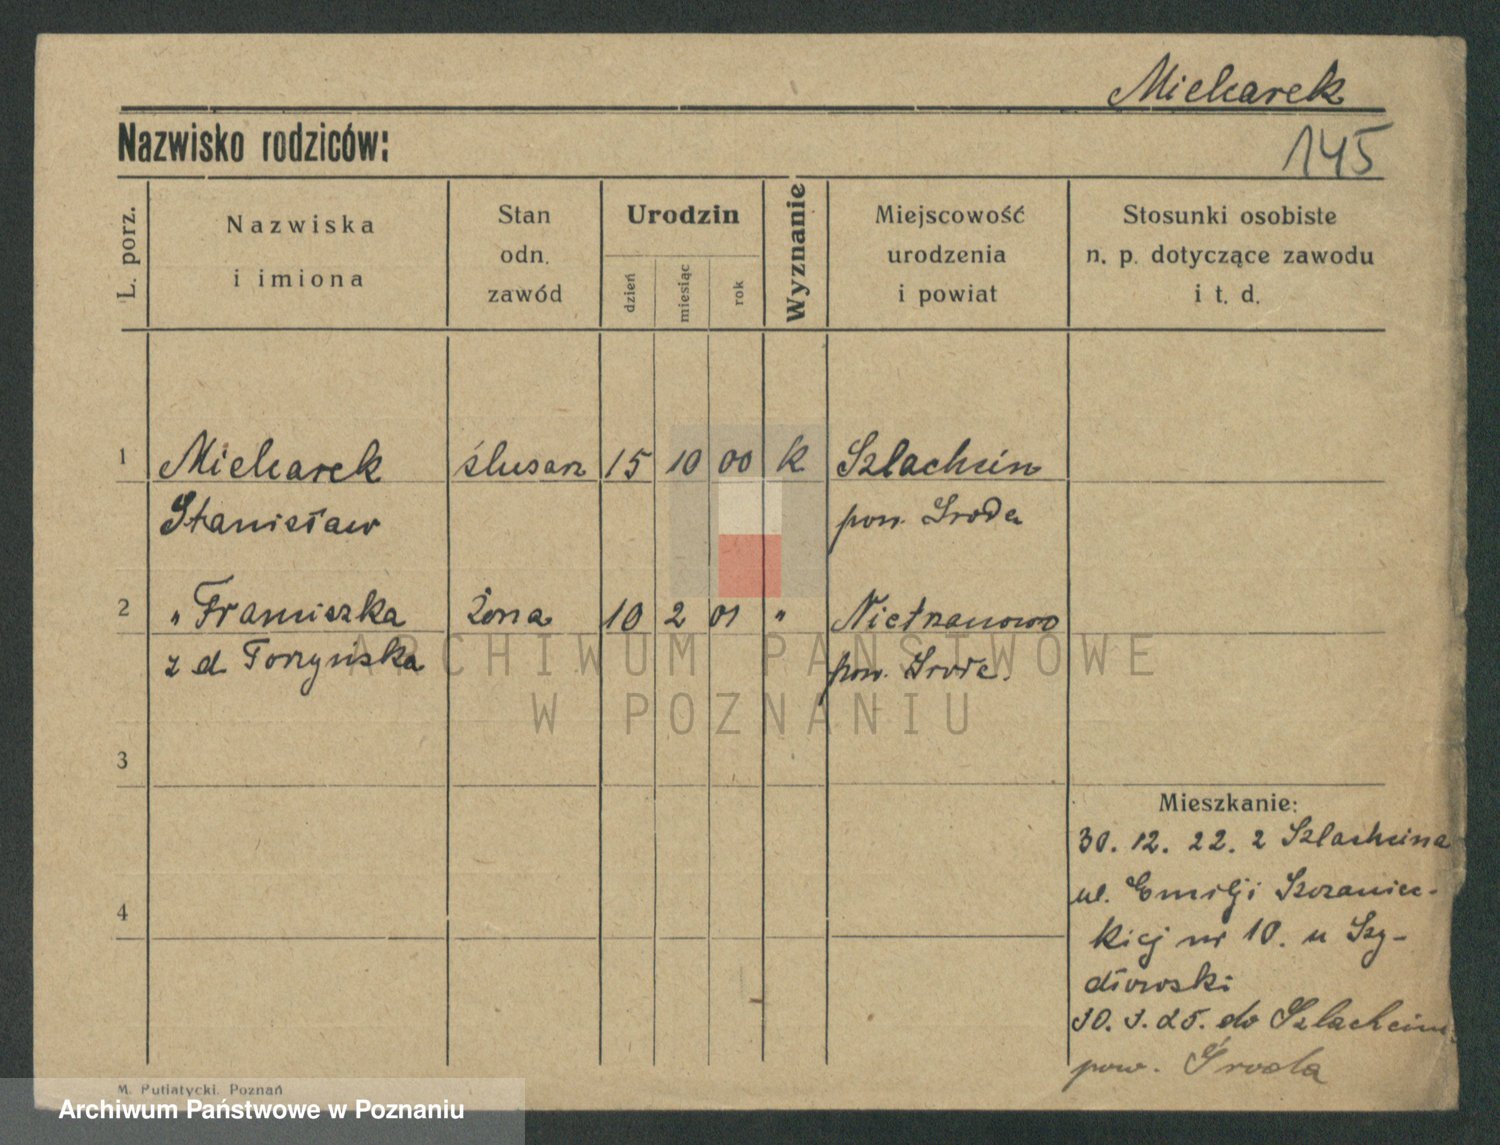 Mielcarek
Nazwisko rodziców:
145
L. porz.
Nazwiska
i imiona
Stan
odn.
zawód
Urodzin
dzień
miesiąc
rok
Wyznanie
Miejscowość
urodzenia
i powiat
Stosunki osobiste
n. p. dotyczące zawodu
i t. d.
1 Mielcarek ślusarz 15 10 00 K Szlachcin
Stanisław pow. Środa
2 " Franciszka żona 10 2 01 " Nietrzanowo
z d Torzyńska pow. Środa.
ARCHIWUM PAŃSTWOWE
W POZNANIU
3
Mieszkanie:
30. 12. 22. z Szlachcina
ul. Emilji Szczaniec-
4
kiej nr 10. u Szy-
dłowski
30. 1. 25. do Szlachcin
pow. Środa
M. Putiatycki. Poznań
Archiwum Państwowe w Poznaniu